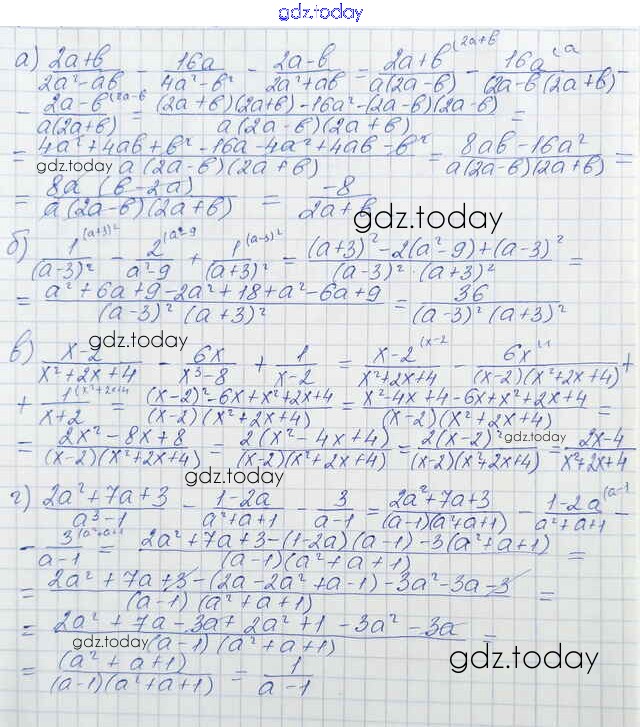 gdz.today
а) (2a+b)/(2a²-ab) - 16a/(4a²-b²) - (2a-b)/(2a²+ab) = (2a+b (2a+b)/(a(2a-b) - 16a (a/(2a-b)(2a+b) -
- (2a-b (2a-b)/(a(2a+b) = ((2a+b)(2a+b)-16a²-(2a-b)(2a-b))/(a(2a-b)(2a+b)) =
= (4a²+4ab+b²-16a-4a²+4ab-b²)/(a(2a-b)(2a+b)) = (8ab-16a²)/(a(2a-b)(2a+b)) =
gdz.today
= 8a(b-2a)/(a(2a-b)(2a+b)) = -8/(2a+b)
gdz.today
б) 1 (a+3)²/(a-3)² - 2 (a²-9/(a²-9) + 1 (a-3)²/(a+3)² = ((a+3)²-2(a²-9)+(a-3)²)/((a-3)²·(a+3)²) =
= (a²+6a+9-2a²+18+a²-6a+9)/((a-3)²(a+3)²) = 36/((a-3)²(a+3)²)
gdz.today
в) (x-2)/(x²+2x+4) - 6x/(x³-8) + 1/(x-2) = (x-2 (x-2)/(x²+2x+4) - 6x (1/((x-2)(x²+2x+4)) +
+ 1 (x²+2x+4/(x+2) = ((x-2)²-6x+x²+2x+4)/((x-2)(x²+2x+4)) = (x²-4x+4-6x+x²+2x+4)/((x-2)(x²+2x+4)) =
= (2x²-8x+8)/((x-2)(x²+2x+4)) = 2(x²-4x+4)/((x-2)(x²+2x+4)) = 2(x-2)²/((x-2)(x²+2x+4)) = (2x-4)/(x²+2x+4)
gdz.today
gdz.today
г) (2a²+7a+3)/(a³-1) - (1-2a)/(a²+a+1) - 3/(a-1) = (2a²+7a+3)/((a-1)(a²+a+1)) - (1-2a (a-1)/(a²+a+1) -
- 3 (a²+a+1/(a-1) = (2a²+7a+3-(1-2a)(a-1)-3(a²+a+1))/((a-1)(a²+a+1)) =
= (2a²+7a+3-(2a-2a²+a-1)-3a²-3a-3)/((a-1)(a²+a+1)) =
= (2a²+7a-3a+2a²+1-3a²-3a)/((a-1)(a²+a+1)) =
gdz.today
= (a²+a+1)/((a-1)(a²+a+1)) = 1/(a-1)
gdz.today